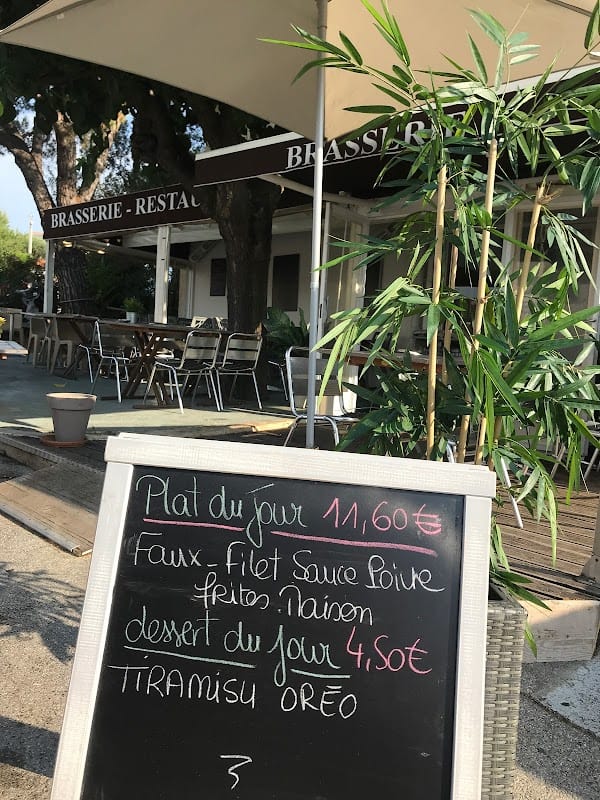 BRASSERIE
BRASSERIE - RESTAU
Plat du jour 11,60€
Faux-Filet Sauce Poivre
frites Maison
dessert du jour 4,50€
TIRAMISU OREO
3